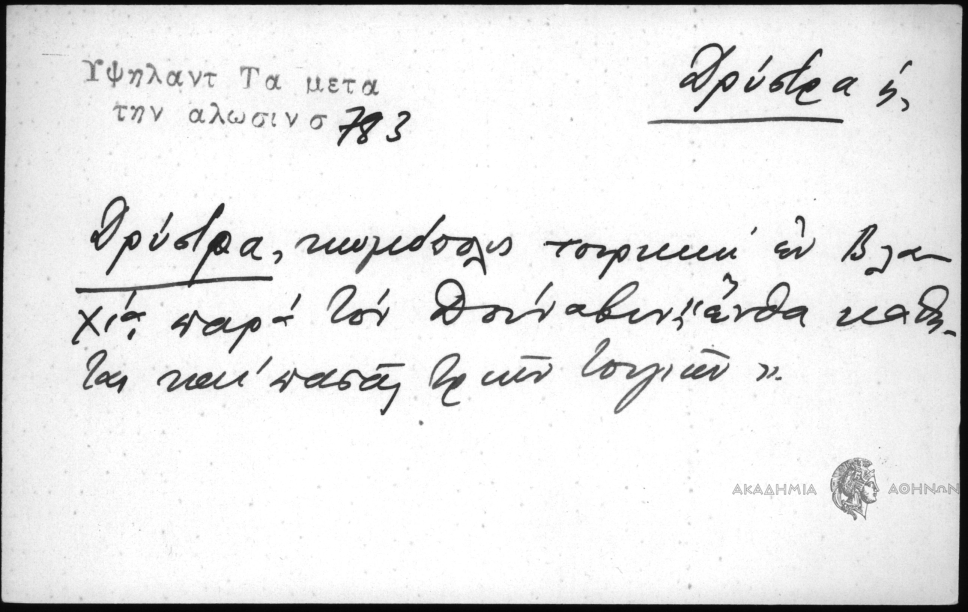 Υψηλαντ Τα μετα
την αλωσινσ 783
Δρύστρα ἡ,
Δρύστρα, κωμόπολις τουρκική ἐν Βλα-
χίᾳ παρά τόν Δούναβιν, "ἔνθα κάθη-
ται καί πασᾶς τριῶν τουγιῶν".
ΑΚΑΔΗΜΙΑ ΑΘΗΝΩΝ